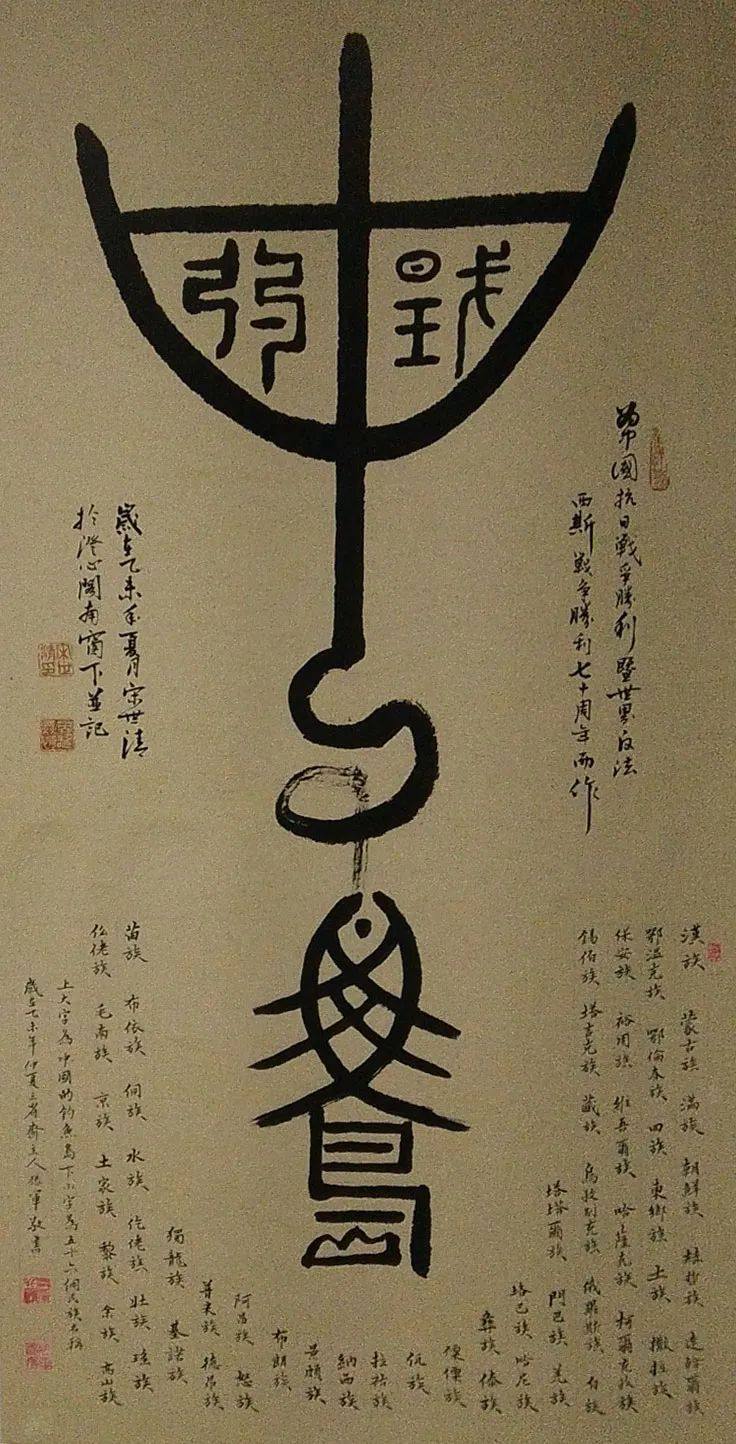 中國的釣魚島
為中國抗日戰爭勝利暨世界反法
西斯戰爭勝利七十周年而作
歲在乙未年夏月宋世清
於澄心閣南窗下並記
漢族 蒙古族 滿族 朝鮮族 赫哲族 達斡爾族
鄂溫克族 鄂倫春族 回族 東鄉族 土族 撒拉族
保安族 裕固族 維吾爾族 哈薩克族 柯爾克孜族
錫伯族 塔吉克族 藏族 烏孜別克族 俄羅斯族 白族
塔塔爾族 門巴族 羌族
珞巴族 哈尼族
彝族 傣族
傈僳族
佤族
拉祜族
納西族
景頗族
布朗族
阿昌族 怒族
普米族 德昂族
獨龍族 基諾族
苗族 布依族 侗族 水族 仡佬族 壯族 瑤族
仫佬族 毛南族 京族 土家族 黎族 畬族 高山族
上大字為中國的釣魚島下小字為五十六個民族名稱
歲在乙未年仲夏三省齋主人張軍敬書